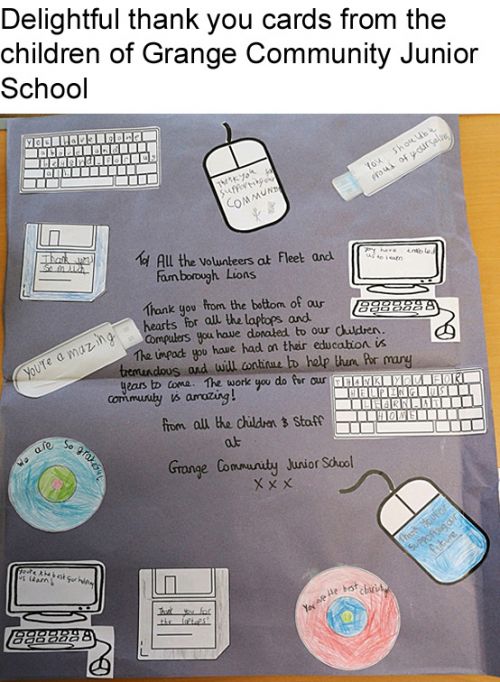 Delightful thank you cards from the
children of Grange Community Junior
School
thank you for
supporting our
COMMUNITY
You should be
proud of yourselves
Thank you
So much
To All the volunteers at Fleet and
Farnborough Lions
They have enabled
us to learn
Thank you from the bottom of our
hearts for all the laptops and
Computers you have donated to our Children.
The impact you have had on their education is
tremendous and will continue to help them for many
years to come. The work you do for our
community is amazing!
You're amazing
THANK YOU FOR
HELPING US
LEARN AT
HOME
from all the Children & Staff
at
Grange Community Junior School
X X X
We are So grateful
Thank you for
supporting our
future
You're the best for helping
us learn
Thank you for
the laptops!
You are the best charity